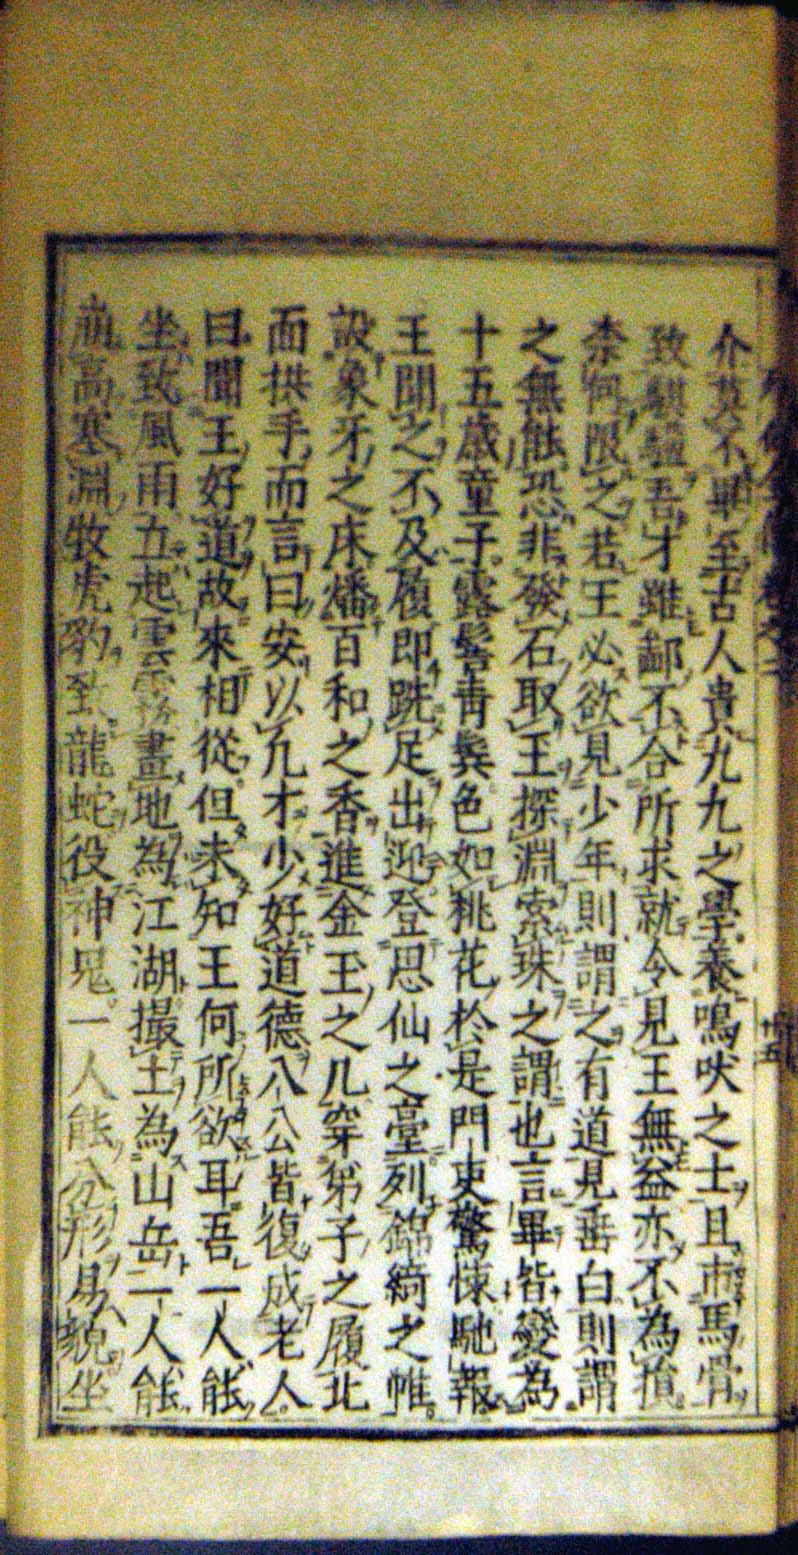 介莫不畢至古人貴九九之學養鳴吠之士且市馬骨
致騏驥吾才雖鄙不合所求就令見王無益亦不為損
柰何限之若王必欲見少年則謂之有道見垂白則謂
之無能恐非發石取玉探淵索珠之謂也言畢皆變為
十五歳童子露髻青鬂色如桃花於是門吏驚悚馳報
王聞之不及履即跣足出迎登思仙之臺列錦綺之帷
設象牙之床燔百和之香進金玉之几穿弟子之履北
面拱手而言曰安以凢才少好道德八公皆復成老人
曰聞王好道故來相從但未知王何所欲耳吾一人能
坐致風雨立起雲霧畫地為江湖撮土為山岳一人能
崩高塞淵牧虎豹致龍蛇役神鬼一人能分形易貌坐
十五